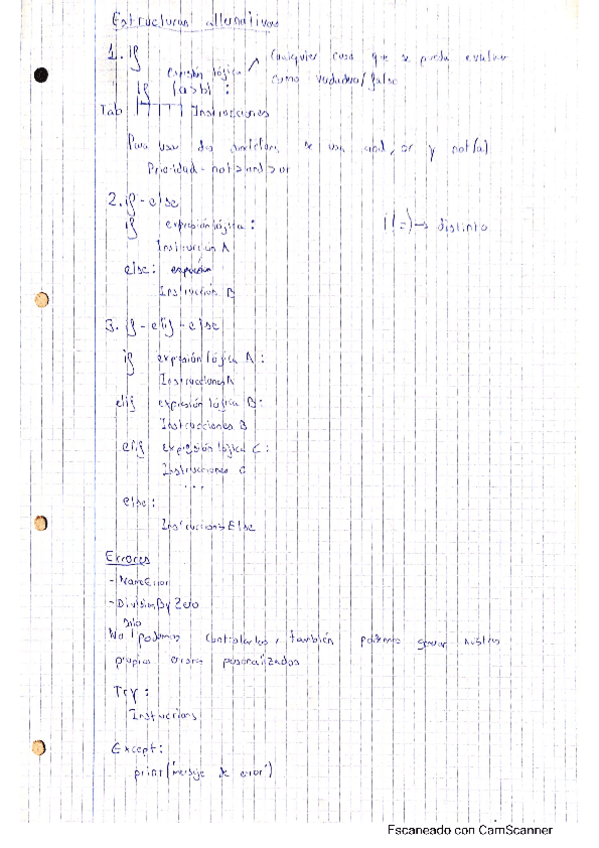 Estructuras alternativas
1. if
Cualquier cosa que se pueda evaluar
como verdadera/false
expresión lógica
if (a>b) :
Tab Instrucciones
Para usar dos se usa and, or y not(a)
Prioridad - not>and>or
2. if - else
if expresión lógica :
Instrucción A
!(=) → distinto
else:
Instrucción B
3. if - elif - else
if expresión lógica A :
Instrucciones A
elif expresión lógica B :
Instrucciones B
elif expresión lógica C :
Instrucciones C
...
else :
Instrucciones Else
Errores
- NameError
- DivisionByZero
No solo podemos controlarlos, también podemos generar nuestros
propios errores personalizados
Try :
Instructions
Except :
print('mensaje de error')
Escaneado con CamScanner